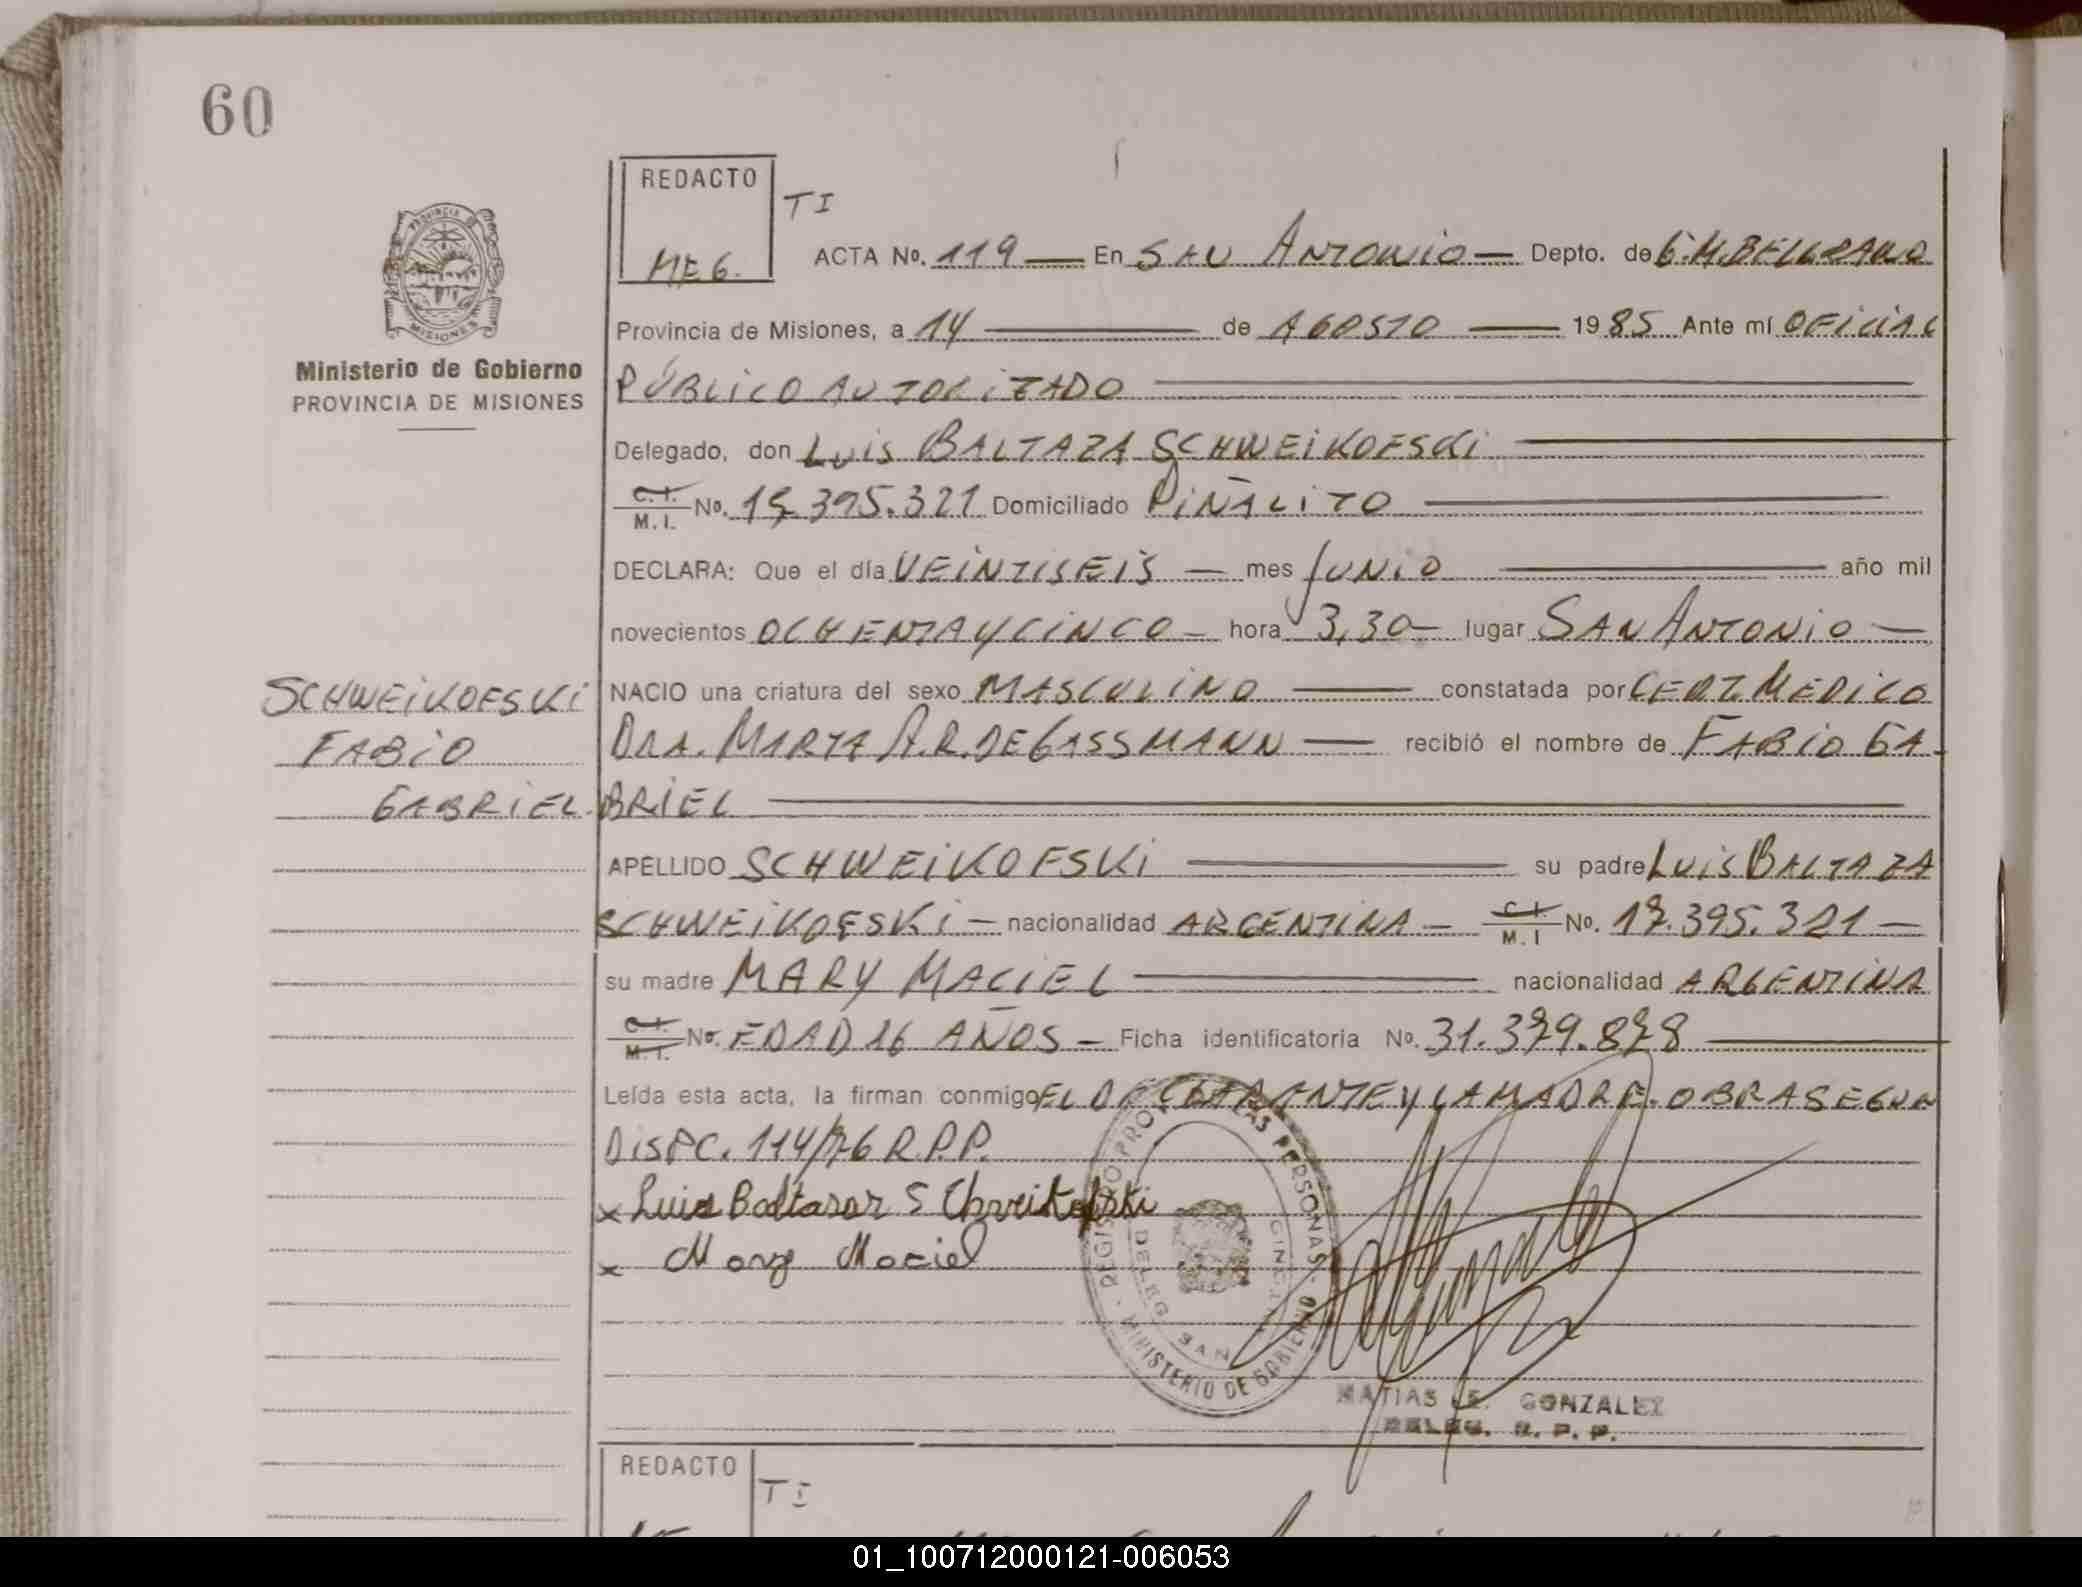 60
REDACTO
TI
MEG.
ACTA No. 119 — En SAN ANTONIO — Depto. de G.M.BELGRANO
Provincia de Misiones, a 14 — de AGOSTO — 1985 Ante mí OFICIAL
PÚBLICO AUTORIZADO
Ministerio de Gobierno
PROVINCIA DE MISIONES
Delegado, don LUIS BALTAZA SCHWEIKOFSKI
C.I. M.I. No. 17.395.321 Domiciliado PIÑALITO
DECLARA: Que el día VEINTISEIS — mes JUNIO — año mil
novecientos OCHENTA Y CINCO — hora 3,30 — lugar SAN ANTONIO —
SCHWEIKOFSKI
FABIO
GABRIEL.
NACIO una criatura del sexo MASCULINO — constatada por CERT. MEDICO
DRA. MARTA A.R. DE GASSMANN — recibió el nombre de FABIO GA-
BRIEL
APELLIDO SCHWEIKOFSKI — su padre LUIS BALTAZA
SCHWEIKOFSKI — nacionalidad ARGENTINA — C.I. M.I No. 17.395.321 —
su madre MARY MACIEL — nacionalidad ARGENTINA
C.I. M.I. No. EDAD 16 AÑOS — Ficha identificatoria No. 31.379.878
Leída esta acta, la firman conmigo EL DECLARANTE Y LA MADRE. OBRA SEGUN
DISPC. 114/76 R.P.P.
x Luis Baltasar Schweikofski
x Mary Maciel
REGISTRO PRO LAS PERSONAS · MINISTERIO DE GOBIERNO
DELEG SAN
MATIAS E. GONZALEZ
DELEG. R. P. P.
REDACTO
TI
01_100712000121-006053